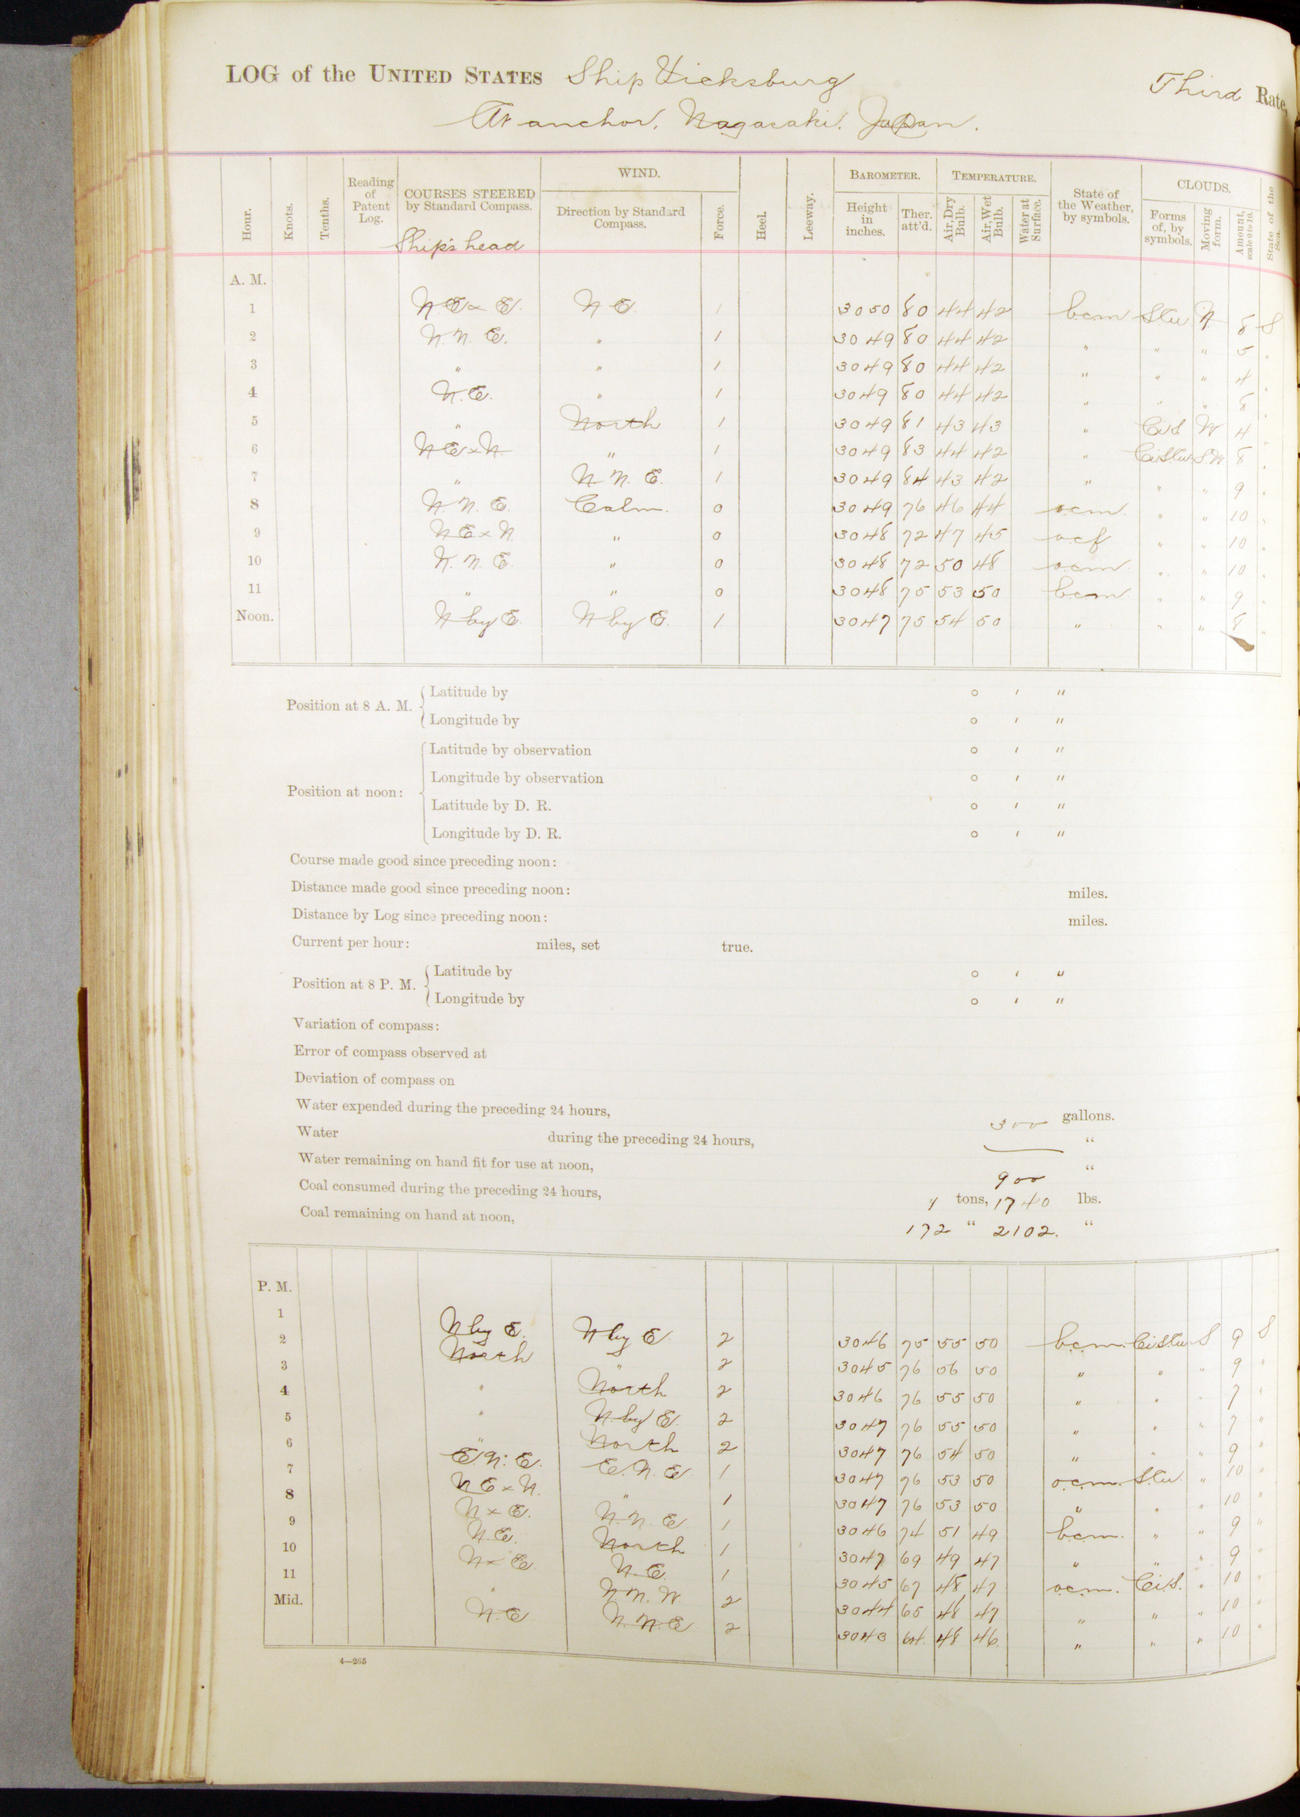 LOG of the UNITED STATES Ship Vicksburg Third Rate,
At anchor, Nagasaki, Japan.
Hour. Knots. Tenths. Reading of Patent Log. COURSES STEERED by Standard Compass. WIND. Direction by Standard Compass. Force. Heel. Leeway. BAROMETER. Height in inches. Ther. att'd. TEMPERATURE. Air, Dry Bulb. Air, Wet Bulb. Water at Surface. State of the Weather, by symbols. CLOUDS. Forms of, by symbols. Moving form. Amount, scale 0 to 10. State of the Sea.
Ship's head
A. M.
1 NE x E. NE 1 3050 80 44 42 bcm Stu N 8 S
2 N.N.E. " 1 3049 80 44 42 " " " 5 "
3 " " 1 3049 80 44 42 " " " 4 "
4 N.E. " 1 3049 80 44 42 " " " 8 "
5 " North 1 3049 81 43 43 " Ci S W 4 "
6 NE x N " 1 3049 83 44 42 " CiStu SW 8 "
7 " N.N.E. 1 3049 84 43 42 " " " 9 "
8 N.N.E. Calm. 0 3049 76 46 44 ocm " " 10 "
9 NE x N " 0 3048 72 47 45 ocf " " 10 "
10 N.N.E. " 0 3048 72 50 48 ocm " " 10 "
11 " " 0 3048 75 53 50 bcm " " 9 "
Noon. N by E. N by E. 1 3047 75 54 50 " " " 8 "
Position at 8 A. M. Latitude by ° ' "
Longitude by ° ' "
Position at noon: Latitude by observation ° ' "
Longitude by observation ° ' "
Latitude by D. R. ° ' "
Longitude by D. R. ° ' "
Course made good since preceding noon:
Distance made good since preceding noon: miles.
Distance by Log since preceding noon: miles.
Current per hour: miles, set true.
Position at 8 P. M. Latitude by ° ' "
Longitude by ° ' "
Variation of compass:
Error of compass observed at
Deviation of compass on
Water expended during the preceding 24 hours, 300 gallons.
Water during the preceding 24 hours, — "
Water remaining on hand fit for use at noon, 900 "
Coal consumed during the preceding 24 hours, tons, 1740 lbs.
Coal remaining on hand at noon, 172 " 2102. "
P. M.
1 N by E. N by E 2 3046 75 55 50 bcm. CiStu S 9 S
2 North " 2 3045 76 56 50 " " " 9 "
3 " North 2 3046 76 55 50 " " " 7 "
4 " N by E. 2 3047 76 55 50 " " " 7 "
5 " North 2 3047 76 54 50 " " " 9 "
6 E.N.E. E.N.E 1 3047 76 53 50 o.c.m. Stu. " 10 "
7 NE x N. " 1 3047 76 53 50 " " " 10 "
8 N x E. N.N.E. 1 3046 74 51 49 bcm. " " 9 "
9 N.E. North 1 3047 69 49 47 " " " 9 "
10 N x E. N.E. 1 3045 67 48 47 ocm. Ci S. " 10 "
11 " N.N.W 2 3044 65 48 47 " " " 10 "
Mid. N.E N.N.E 2 3043 64. 48 46. " " " 10 "
4—265